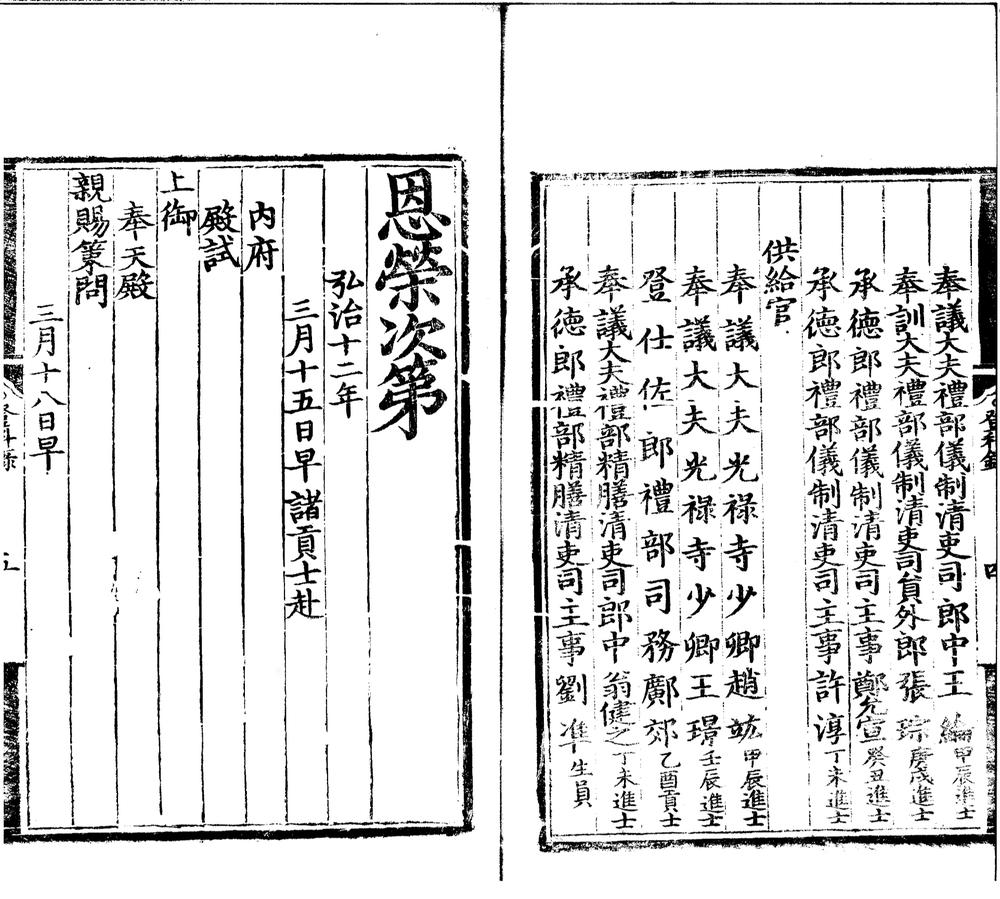 奉議大夫禮部儀制清吏司郎中王綸甲辰進士
奉訓大夫禮部儀制清吏司員外郎張琮庚戌進士
承德郎禮部儀制清吏司主事鄭允宣癸丑進士
承德郎禮部儀制清吏司主事許淳丁未進士
供給官
奉議大夫光祿寺少卿趙竑甲辰進士
奉議大夫光祿寺少卿王璟壬辰進士
登仕佐郎禮部司務鄺郊乙酉貢士
奉議大夫禮部精膳清吏司郎中翁健之丁未進士
承德郎禮部精膳清吏司主事劉準生員
登科錄
四
恩榮次第
弘治十二年
三月十五日早諸貢士赴
內府
殿試
上御
奉天殿
親賜策問
三月十八日早
登科錄
五